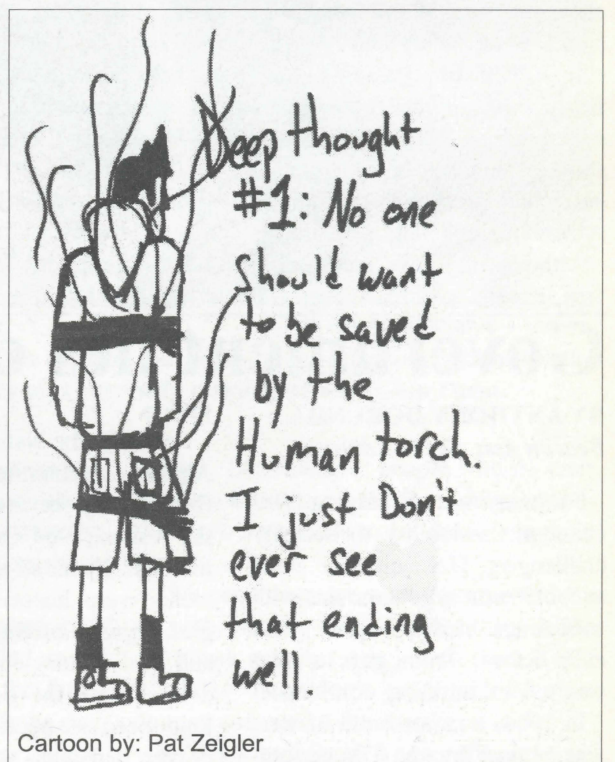 Deep thought
#1. No one
Should want
to be saved
by the
Human torch.
I just Don't
ever see
that ending
well.
Cartoon by: Pat Zeigler